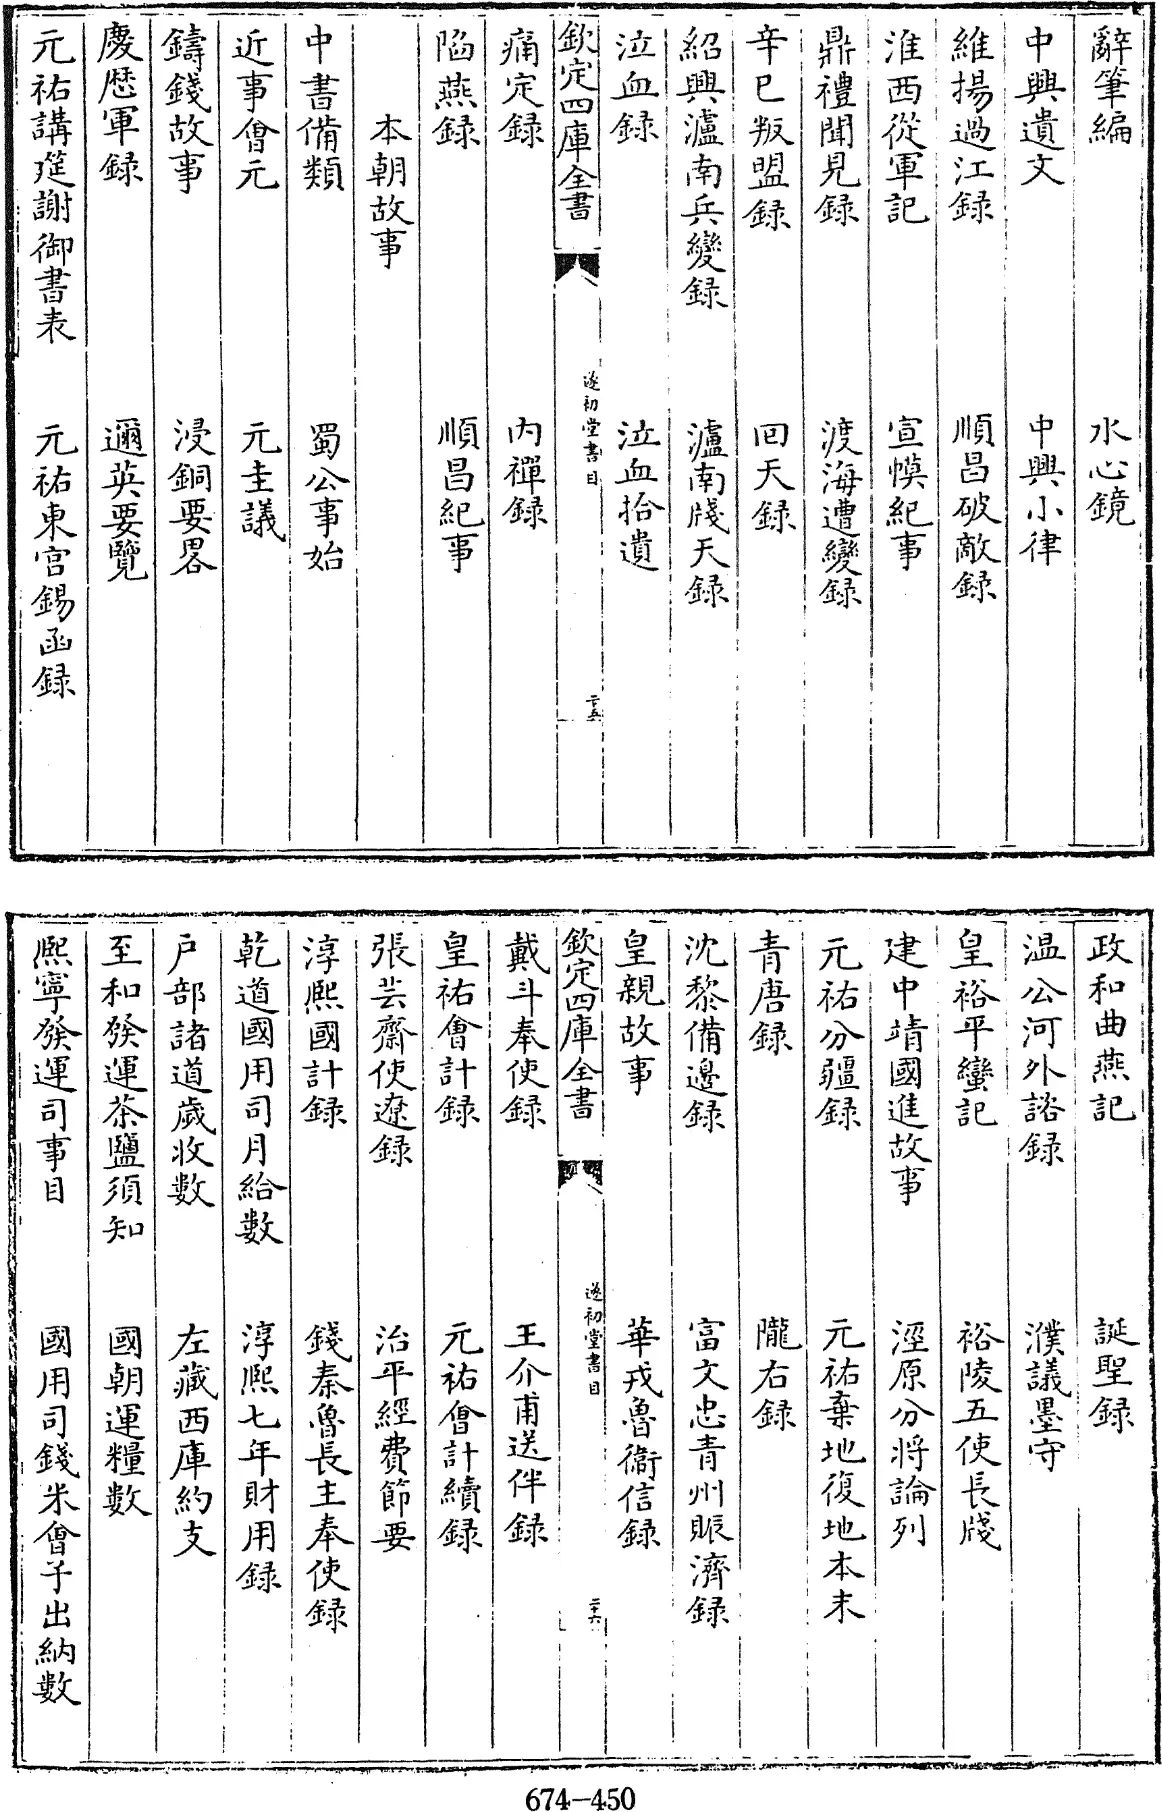 辭筆編　水心鏡
中興遺文　中興小律
維揚過江録　順昌破敵録
淮西從軍記　宣幙紀事
鼎禮聞見録　渡海遭變録
辛巳叛盟録　回天録
紹興瀘南兵變録　瀘南牋天録
泣血録　泣血拾遺
欽定四庫全書　遂初堂書目　二十五
痛定録　内禪録
陷燕録　順昌紀事
本朝故事
中書備類　蜀公事始
近事㑹元　元圭議
鑄錢故事　浸銅要畧
慶歴軍録　邇英要覽
元祐講筵謝御書表　元祐東宫錫函録
政和曲燕記　誕聖録
温公河外諮録　濮議墨守
皇裕平蠻記　裕陵五使長牋
建中靖國進故事　涇原分將論列
元祐分疆録　元祐棄地復地本末
青唐録　隴右録
沈黎備邊録　富文忠青州賑濟録
皇親故事　華戎魯衛信録
欽定四庫全書　遂初堂書目　二十六
戴斗奉使録　王介甫送伴録
皇祐㑹計録　元祐㑹計續録
張芸齋使遼録　治平經費節要
淳熙國計録　錢秦魯長主奉使録
乾道國用司月給數　淳熙七年財用録
户部諸道歲收數　左藏西庫約支
至和發運茶鹽須知　國朝運糧數
熙寧發運司事目　國用司錢米㑹子出納數
674-450